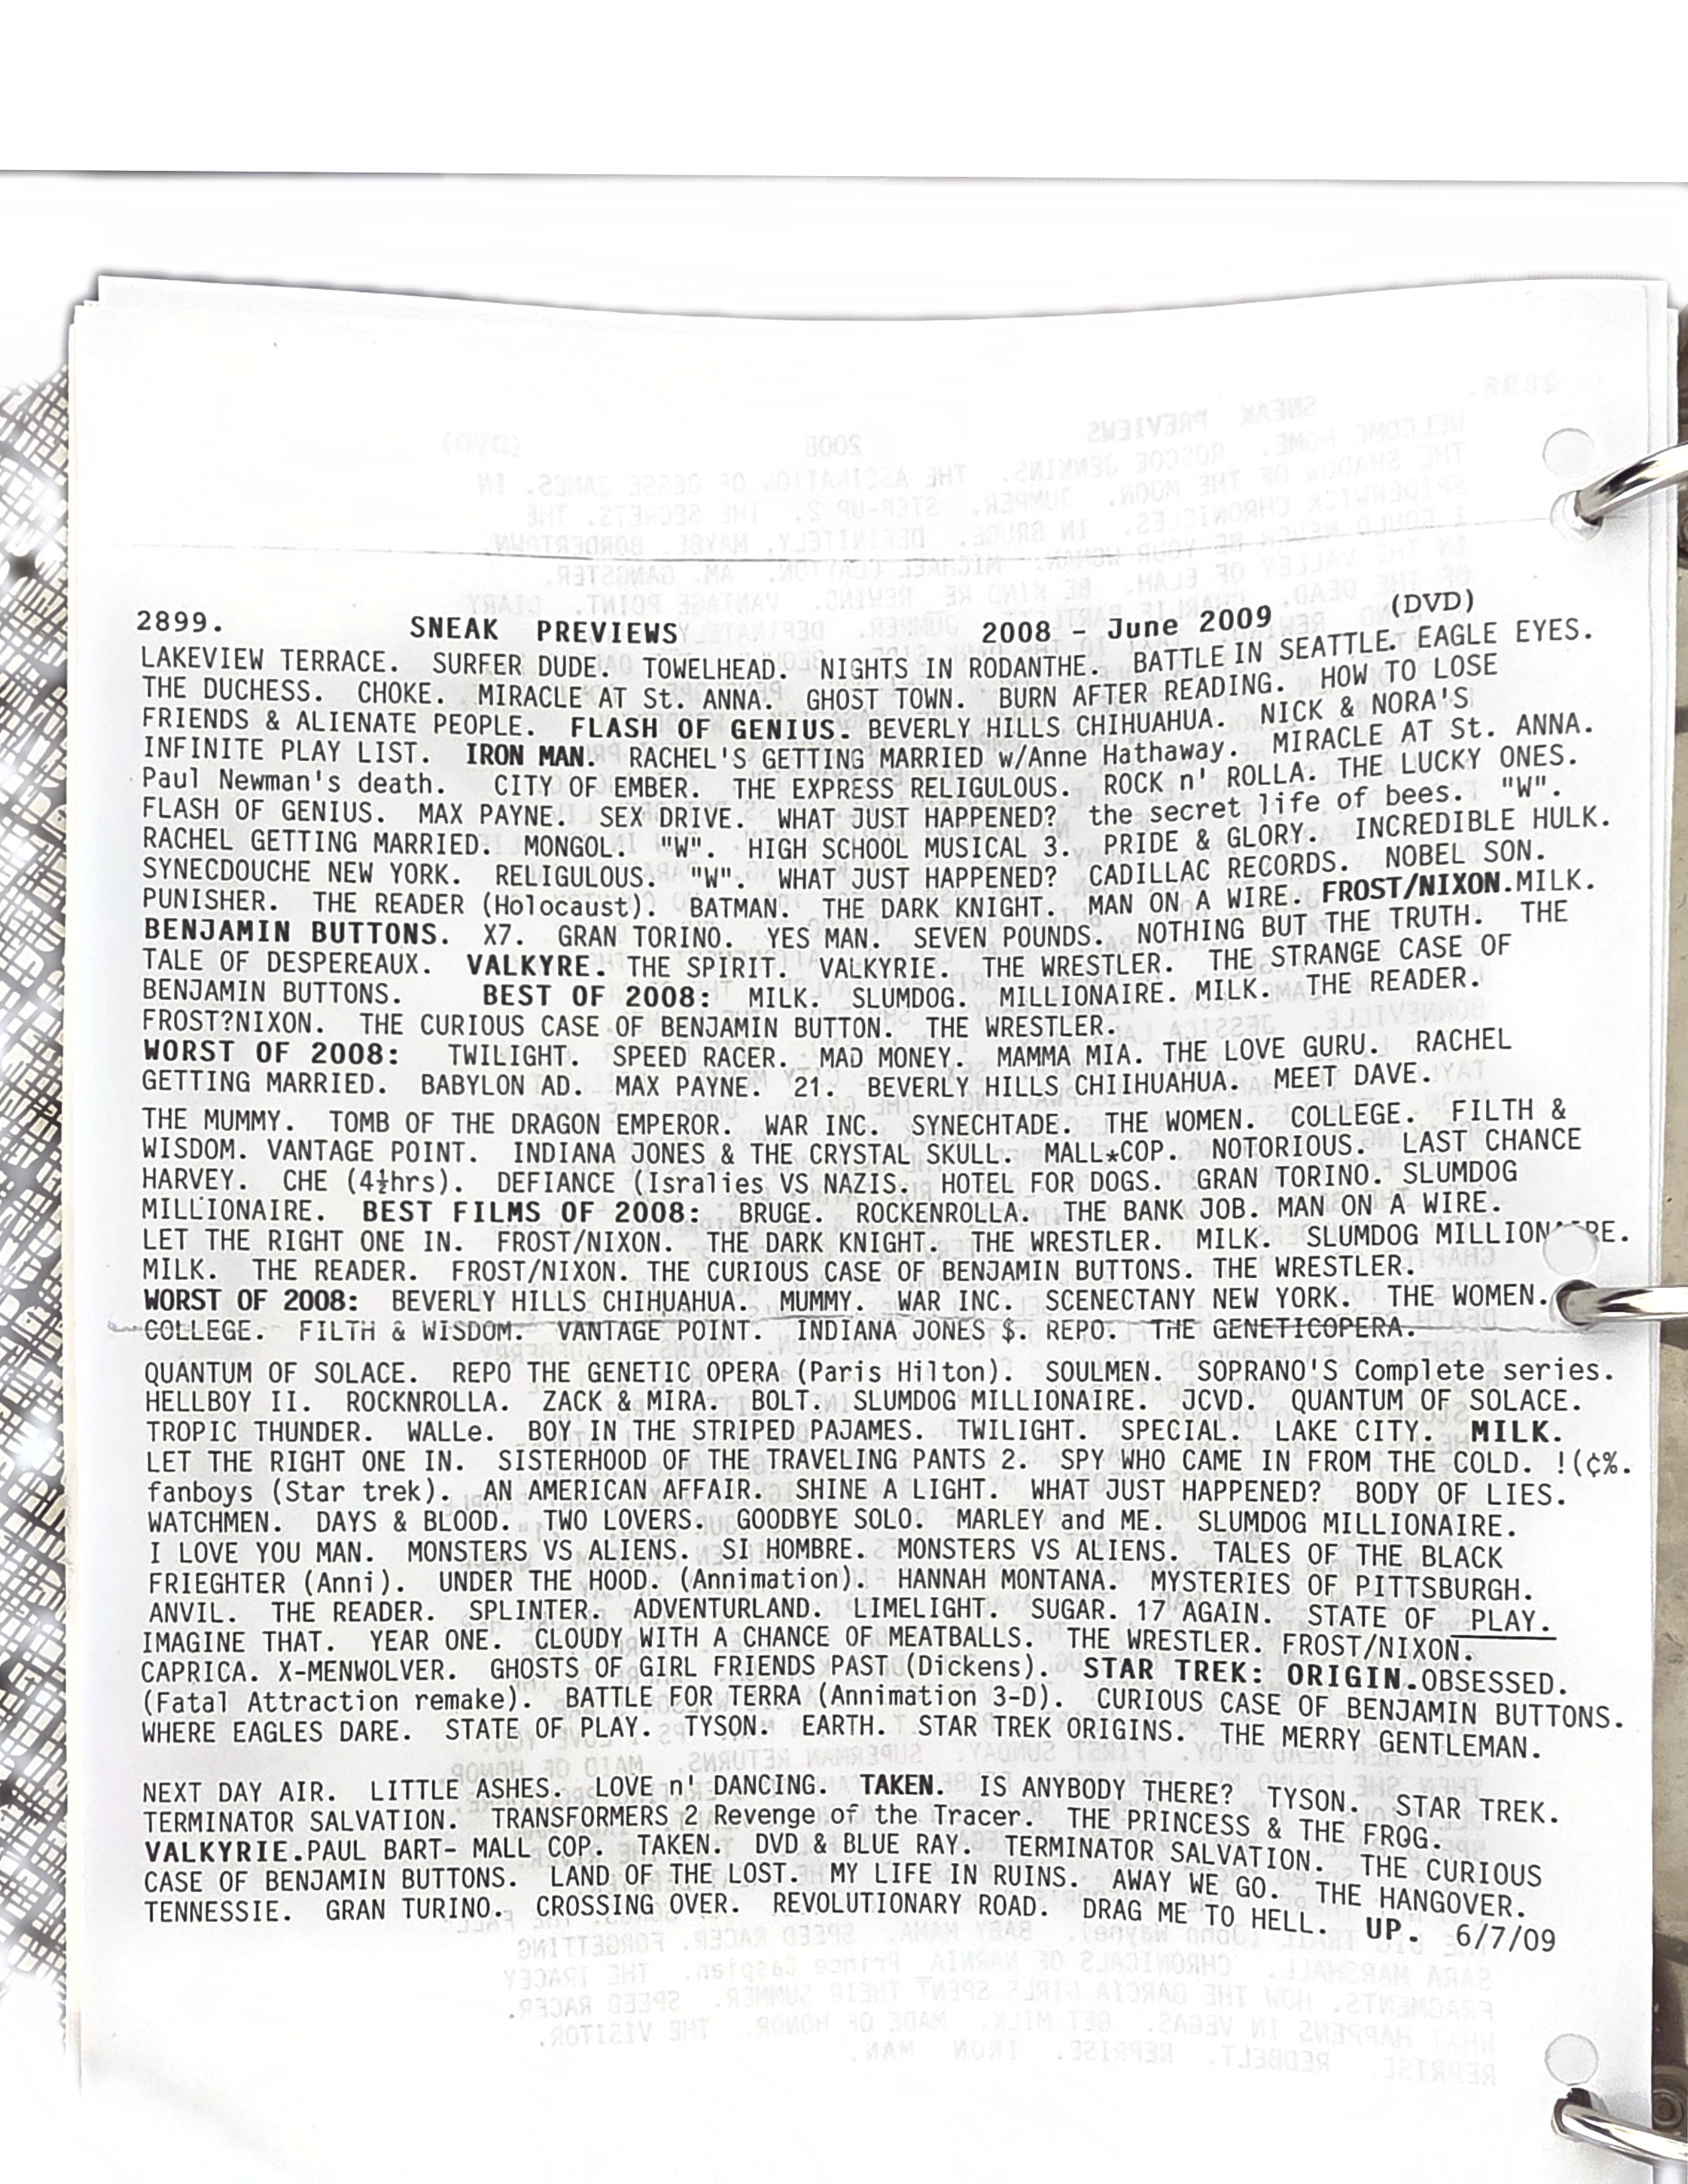 2899. SNEAK PREVIEWS 2008 - June 2009 (DVD)
LAKEVIEW TERRACE. SURFER DUDE. TOWELHEAD. NIGHTS IN RODANTHE. BATTLE IN SEATTLE. EAGLE EYES.
THE DUCHESS. CHOKE. MIRACLE AT St. ANNA. GHOST TOWN. BURN AFTER READING. HOW TO LOSE
FRIENDS & ALIENATE PEOPLE. FLASH OF GENIUS. BEVERLY HILLS CHIHUAHUA. NICK & NORA'S
INFINITE PLAY LIST. IRON MAN. RACHEL'S GETTING MARRIED w/Anne Hathaway. MIRACLE AT St. ANNA.
Paul Newman's death. CITY OF EMBER. THE EXPRESS RELIGULOUS. ROCK n' ROLLA. THE LUCKY ONES.
FLASH OF GENIUS. MAX PAYNE. SEX DRIVE. WHAT JUST HAPPENED? the secret life of bees. "W".
RACHEL GETTING MARRIED. MONGOL. "W". HIGH SCHOOL MUSICAL 3. PRIDE & GLORY. INCREDIBLE HULK.
SYNECDOUCHE NEW YORK. RELIGULOUS. "W". WHAT JUST HAPPENED? CADILLAC RECORDS. NOBEL SON.
PUNISHER. THE READER (Holocaust). BATMAN. THE DARK KNIGHT. MAN ON A WIRE. FROST/NIXON.MILK.
BENJAMIN BUTTONS. X7. GRAN TORINO. YES MAN. SEVEN POUNDS. NOTHING BUT THE TRUTH. THE
TALE OF DESPEREAUX. VALKYRE. THE SPIRIT. VALKYRIE. THE WRESTLER. THE STRANGE CASE OF
BENJAMIN BUTTONS. BEST OF 2008: MILK. SLUMDOG. MILLIONAIRE. MILK. THE READER.
FROST?NIXON. THE CURIOUS CASE OF BENJAMIN BUTTON. THE WRESTLER.
WORST OF 2008: TWILIGHT. SPEED RACER. MAD MONEY. MAMMA MIA. THE LOVE GURU. RACHEL
GETTING MARRIED. BABYLON AD. MAX PAYNE. 21. BEVERLY HILLS CHIIHUAHUA. MEET DAVE.
THE MUMMY. TOMB OF THE DRAGON EMPEROR. WAR INC. SYNECHTADE. THE WOMEN. COLLEGE. FILTH &
WISDOM. VANTAGE POINT. INDIANA JONES & THE CRYSTAL SKULL. MALL*COP. NOTORIOUS. LAST CHANCE
HARVEY. CHE (4½hrs). DEFIANCE (Isralies VS NAZIS. HOTEL FOR DOGS. GRAN TORINO. SLUMDOG
MILLIONAIRE. BEST FILMS OF 2008: BRUGE. ROCKENROLLA. THE BANK JOB. MAN ON A WIRE.
LET THE RIGHT ONE IN. FROST/NIXON. THE DARK KNIGHT. THE WRESTLER. MILK. SLUMDOG MILLIONAIRE.
MILK. THE READER. FROST/NIXON. THE CURIOUS CASE OF BENJAMIN BUTTONS. THE WRESTLER.
WORST OF 2008: BEVERLY HILLS CHIHUAHUA. MUMMY. WAR INC. SCENECTANY NEW YORK. THE WOMEN.
COLLEGE. FILTH & WISDOM. VANTAGE POINT. INDIANA JONES $. REPO. THE GENETICOPERA.
QUANTUM OF SOLACE. REPO THE GENETIC OPERA (Paris Hilton). SOULMEN. SOPRANO'S Complete series.
HELLBOY II. ROCKNROLLA. ZACK & MIRA. BOLT. SLUMDOG MILLIONAIRE. JCVD. QUANTUM OF SOLACE.
TROPIC THUNDER. WALLe. BOY IN THE STRIPED PAJAMES. TWILIGHT. SPECIAL. LAKE CITY. MILK.
LET THE RIGHT ONE IN. SISTERHOOD OF THE TRAVELING PANTS 2. SPY WHO CAME IN FROM THE COLD. !(¢%.
fanboys (Star trek). AN AMERICAN AFFAIR. SHINE A LIGHT. WHAT JUST HAPPENED? BODY OF LIES.
WATCHMEN. DAYS & BLOOD. TWO LOVERS. GOODBYE SOLO. MARLEY and ME. SLUMDOG MILLIONAIRE.
I LOVE YOU MAN. MONSTERS VS ALIENS. SI HOMBRE. MONSTERS VS ALIENS. TALES OF THE BLACK
FRIEGHTER (Anni). UNDER THE HOOD. (Annimation). HANNAH MONTANA. MYSTERIES OF PITTSBURGH.
ANVIL. THE READER. SPLINTER. ADVENTURLAND. LIMELIGHT. SUGAR. 17 AGAIN. STATE OF PLAY.
IMAGINE THAT. YEAR ONE. CLOUDY WITH A CHANCE OF MEATBALLS. THE WRESTLER. FROST/NIXON.
CAPRICA. X-MENWOLVER. GHOSTS OF GIRL FRIENDS PAST (Dickens). STAR TREK: ORIGIN.OBSESSED.
(Fatal Attraction remake). BATTLE FOR TERRA (Annimation 3-D). CURIOUS CASE OF BENJAMIN BUTTONS.
WHERE EAGLES DARE. STATE OF PLAY. TYSON. EARTH. STAR TREK ORIGINS. THE MERRY GENTLEMAN.
NEXT DAY AIR. LITTLE ASHES. LOVE n' DANCING. TAKEN. IS ANYBODY THERE? TYSON. STAR TREK.
TERMINATOR SALVATION. TRANSFORMERS 2 Revenge of the Tracer. THE PRINCESS & THE FROG.
VALKYRIE.PAUL BART- MALL COP. TAKEN. DVD & BLUE RAY. TERMINATOR SALVATION. THE CURIOUS
CASE OF BENJAMIN BUTTONS. LAND OF THE LOST. MY LIFE IN RUINS. AWAY WE GO. THE HANGOVER.
TENNESSIE. GRAN TURINO. CROSSING OVER. REVOLUTIONARY ROAD. DRAG ME TO HELL. UP. 6/7/09